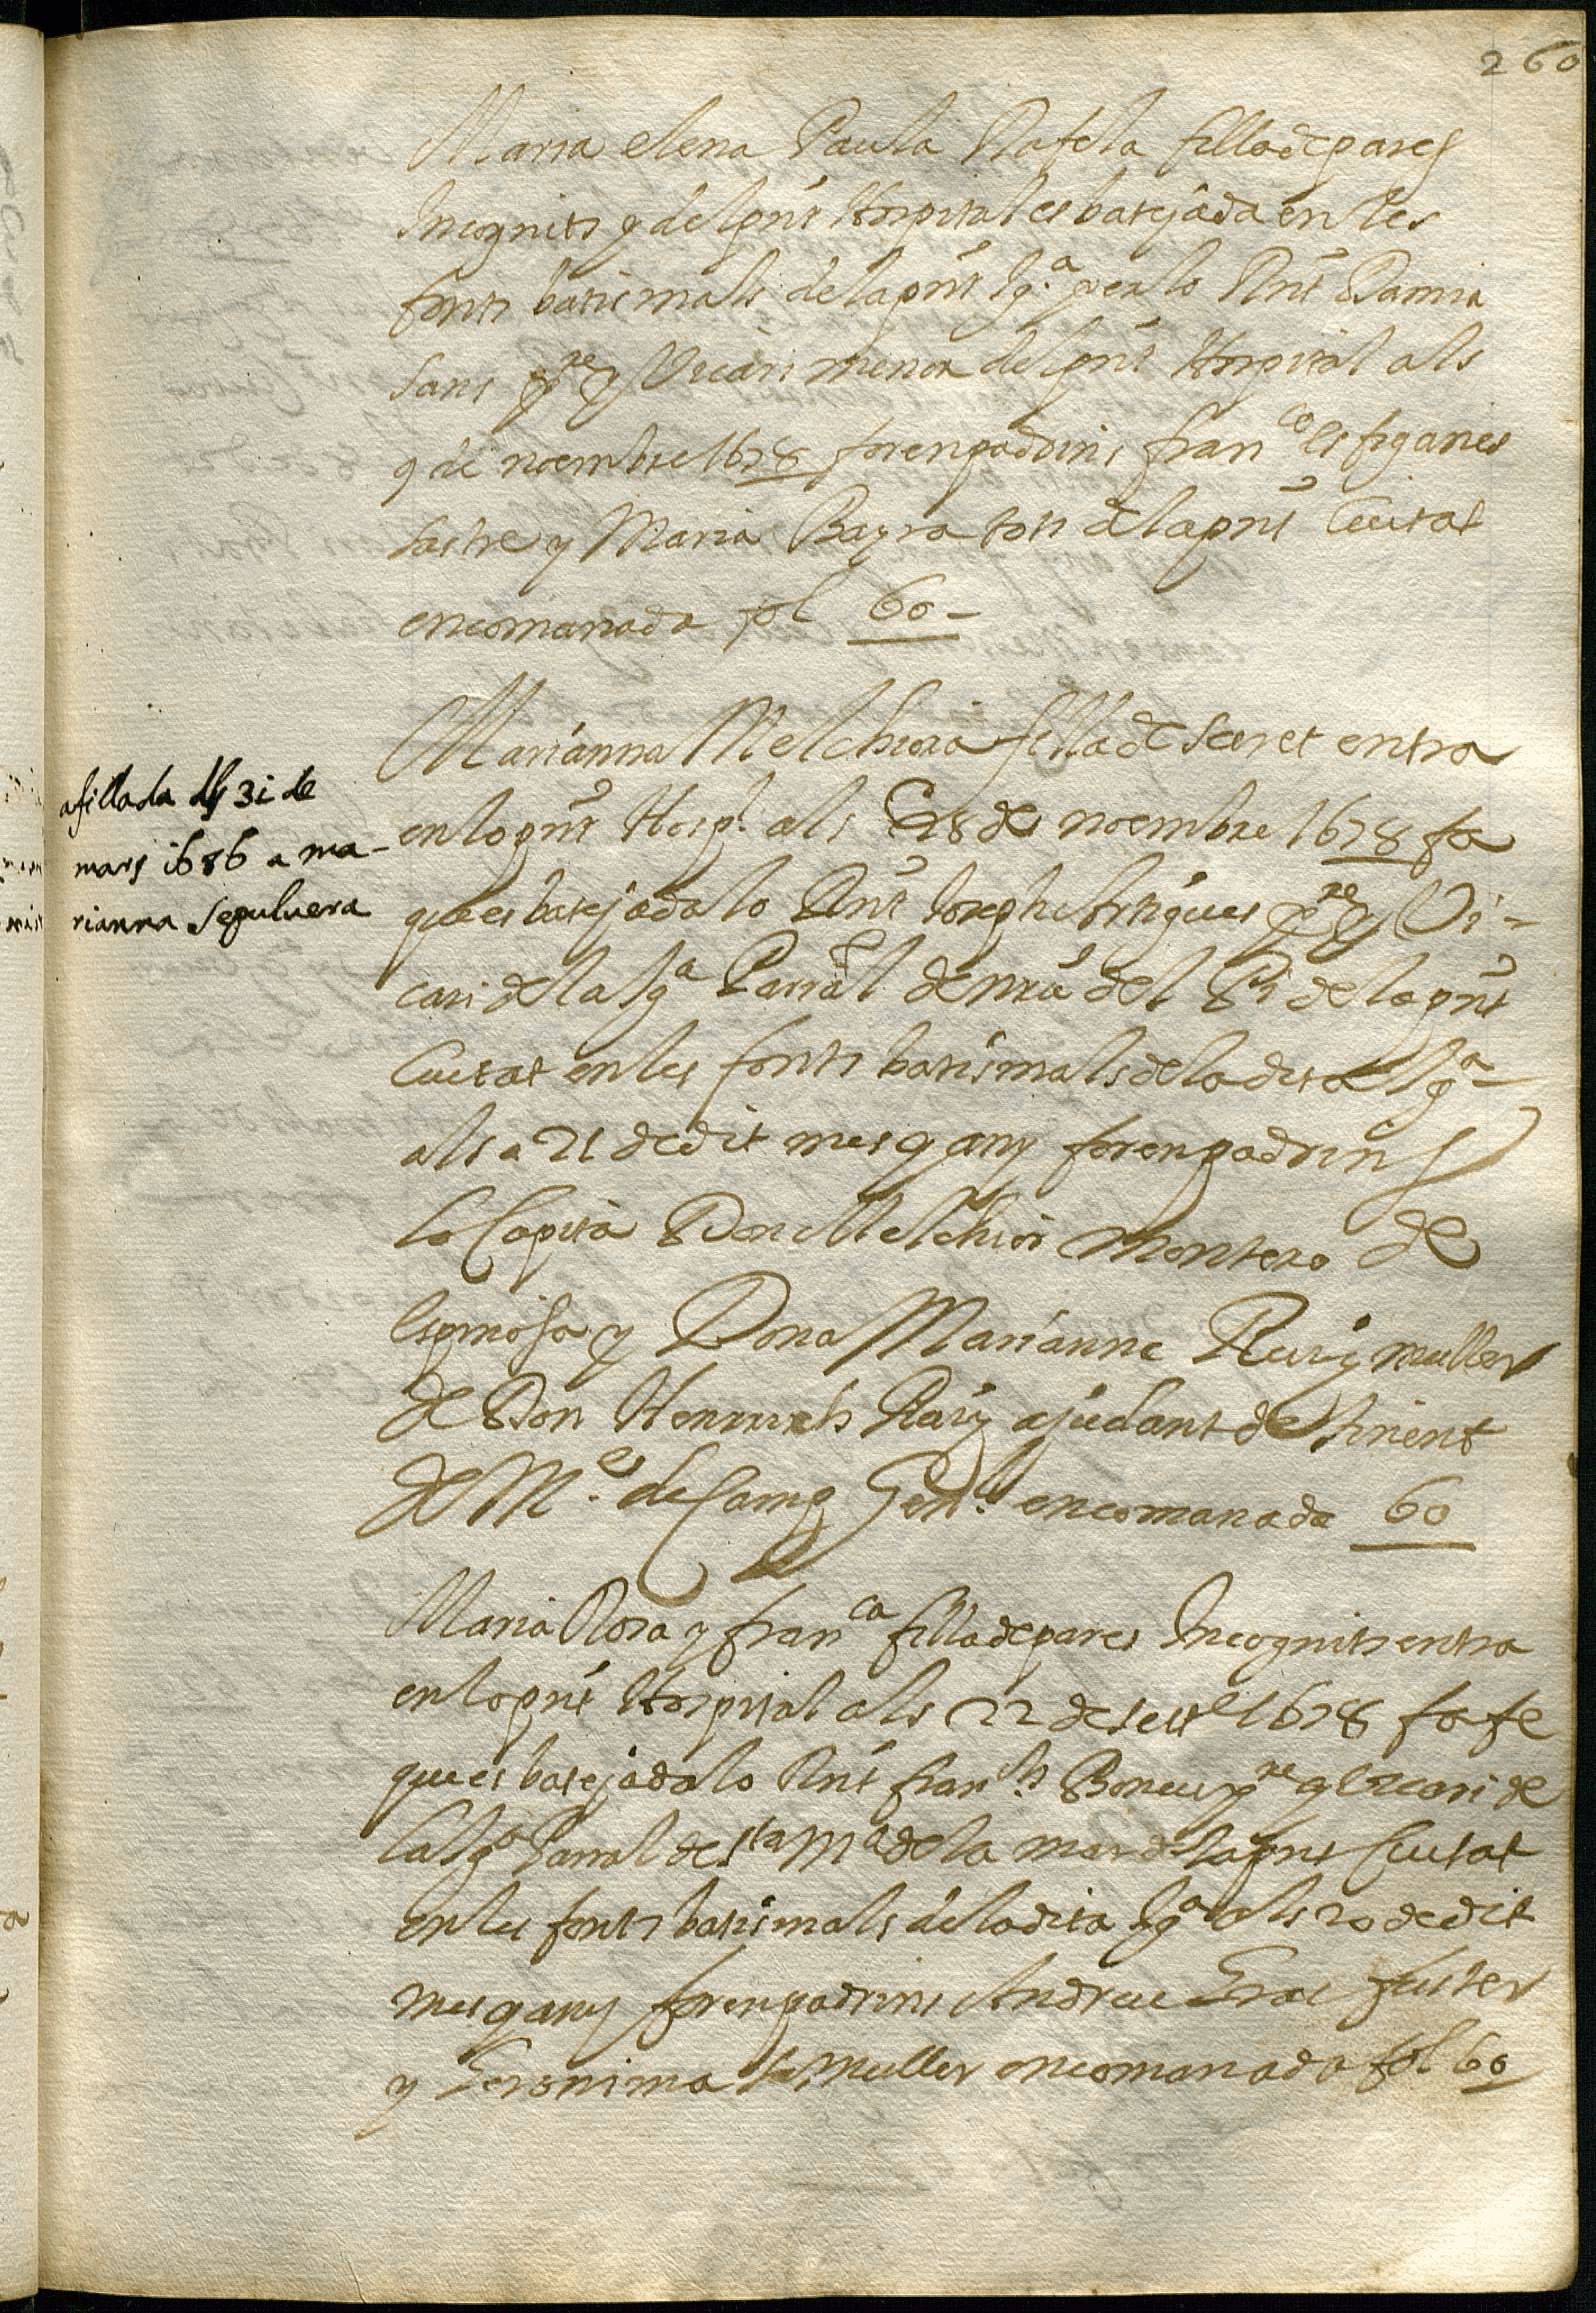 260
Maria elena Paula Rafela filla de pares
Incognits y del pnt Hospital es batejada en les
fonts batismals de la pnt Igª. per lo Rnt Damia
Sans pre y Vicari menor del pnt Hospital als
9 de noembre 1678 foren padrins franco
sastre y Maria Bayra tots de la pnt Ciutat
encomanada fol 60-
Marianna Melchiora filla de secret entra
en lo pnt Hospl. als 28 de noembre 1678 fa
que es batejada lo Rnt Joseph pre y Vi-
cari de la Igª Parral de nra del Pi de la pnt
Ciutat en les fonts batismals de la dita Igª
als a 21 de dit mes y any foren padrins
lo Capita Don Melchior Montero de
Espinosa y Dona Marianna Ruiz muller
de Don Henrrich Ruiz ajudant de tinent
de Me. de Camp Genl. encomanada 60
Maria Rosa y franca filla de pares Incognits entra
en lo pnt Hospital als 22 de 1678 fa fe
que es batejada lo Rnt franch pre y Vicari de
la Igª Parral de Sta Mª de la mar de la pnt Ciutat
en les fonts batismals de la dita Igª als 20 de dit
mes y any foren padrins Andreu Gras fuster
y Geronima sa muller encomanada fol 60
afillada als 31 de
mars 1686 a ma-
rianna Sepulvera